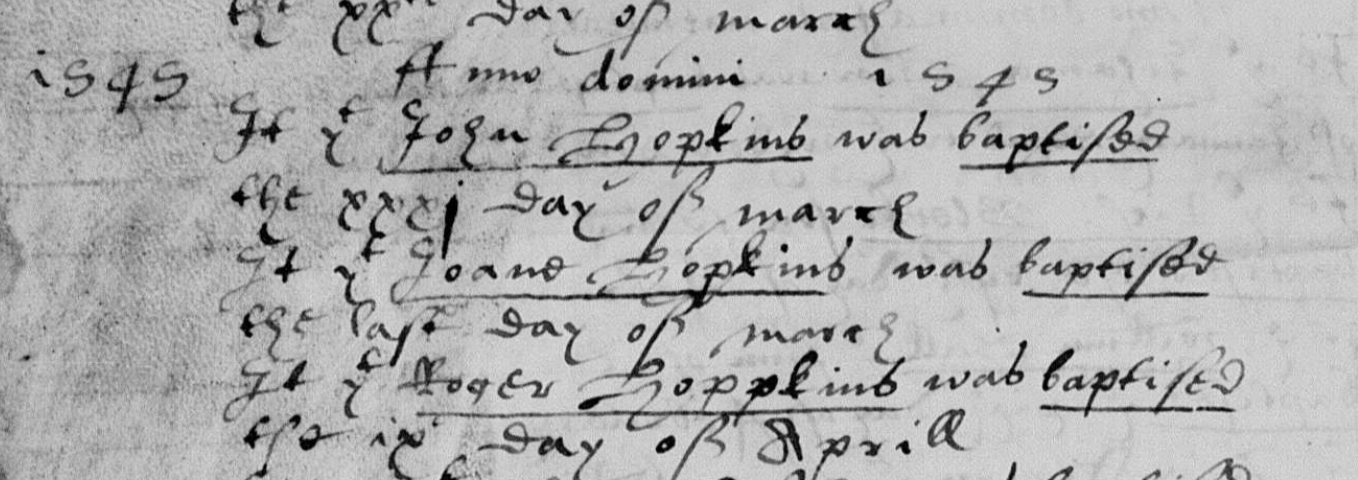 the xxth day of march
1545 Anno domini 1545
It yt John Hopkins was baptised
the xxxj day of march
It yt Joane Hopkins was baptised
the last day of march
It yt Roger Hoppkins was baptised
the ix day of Aprill